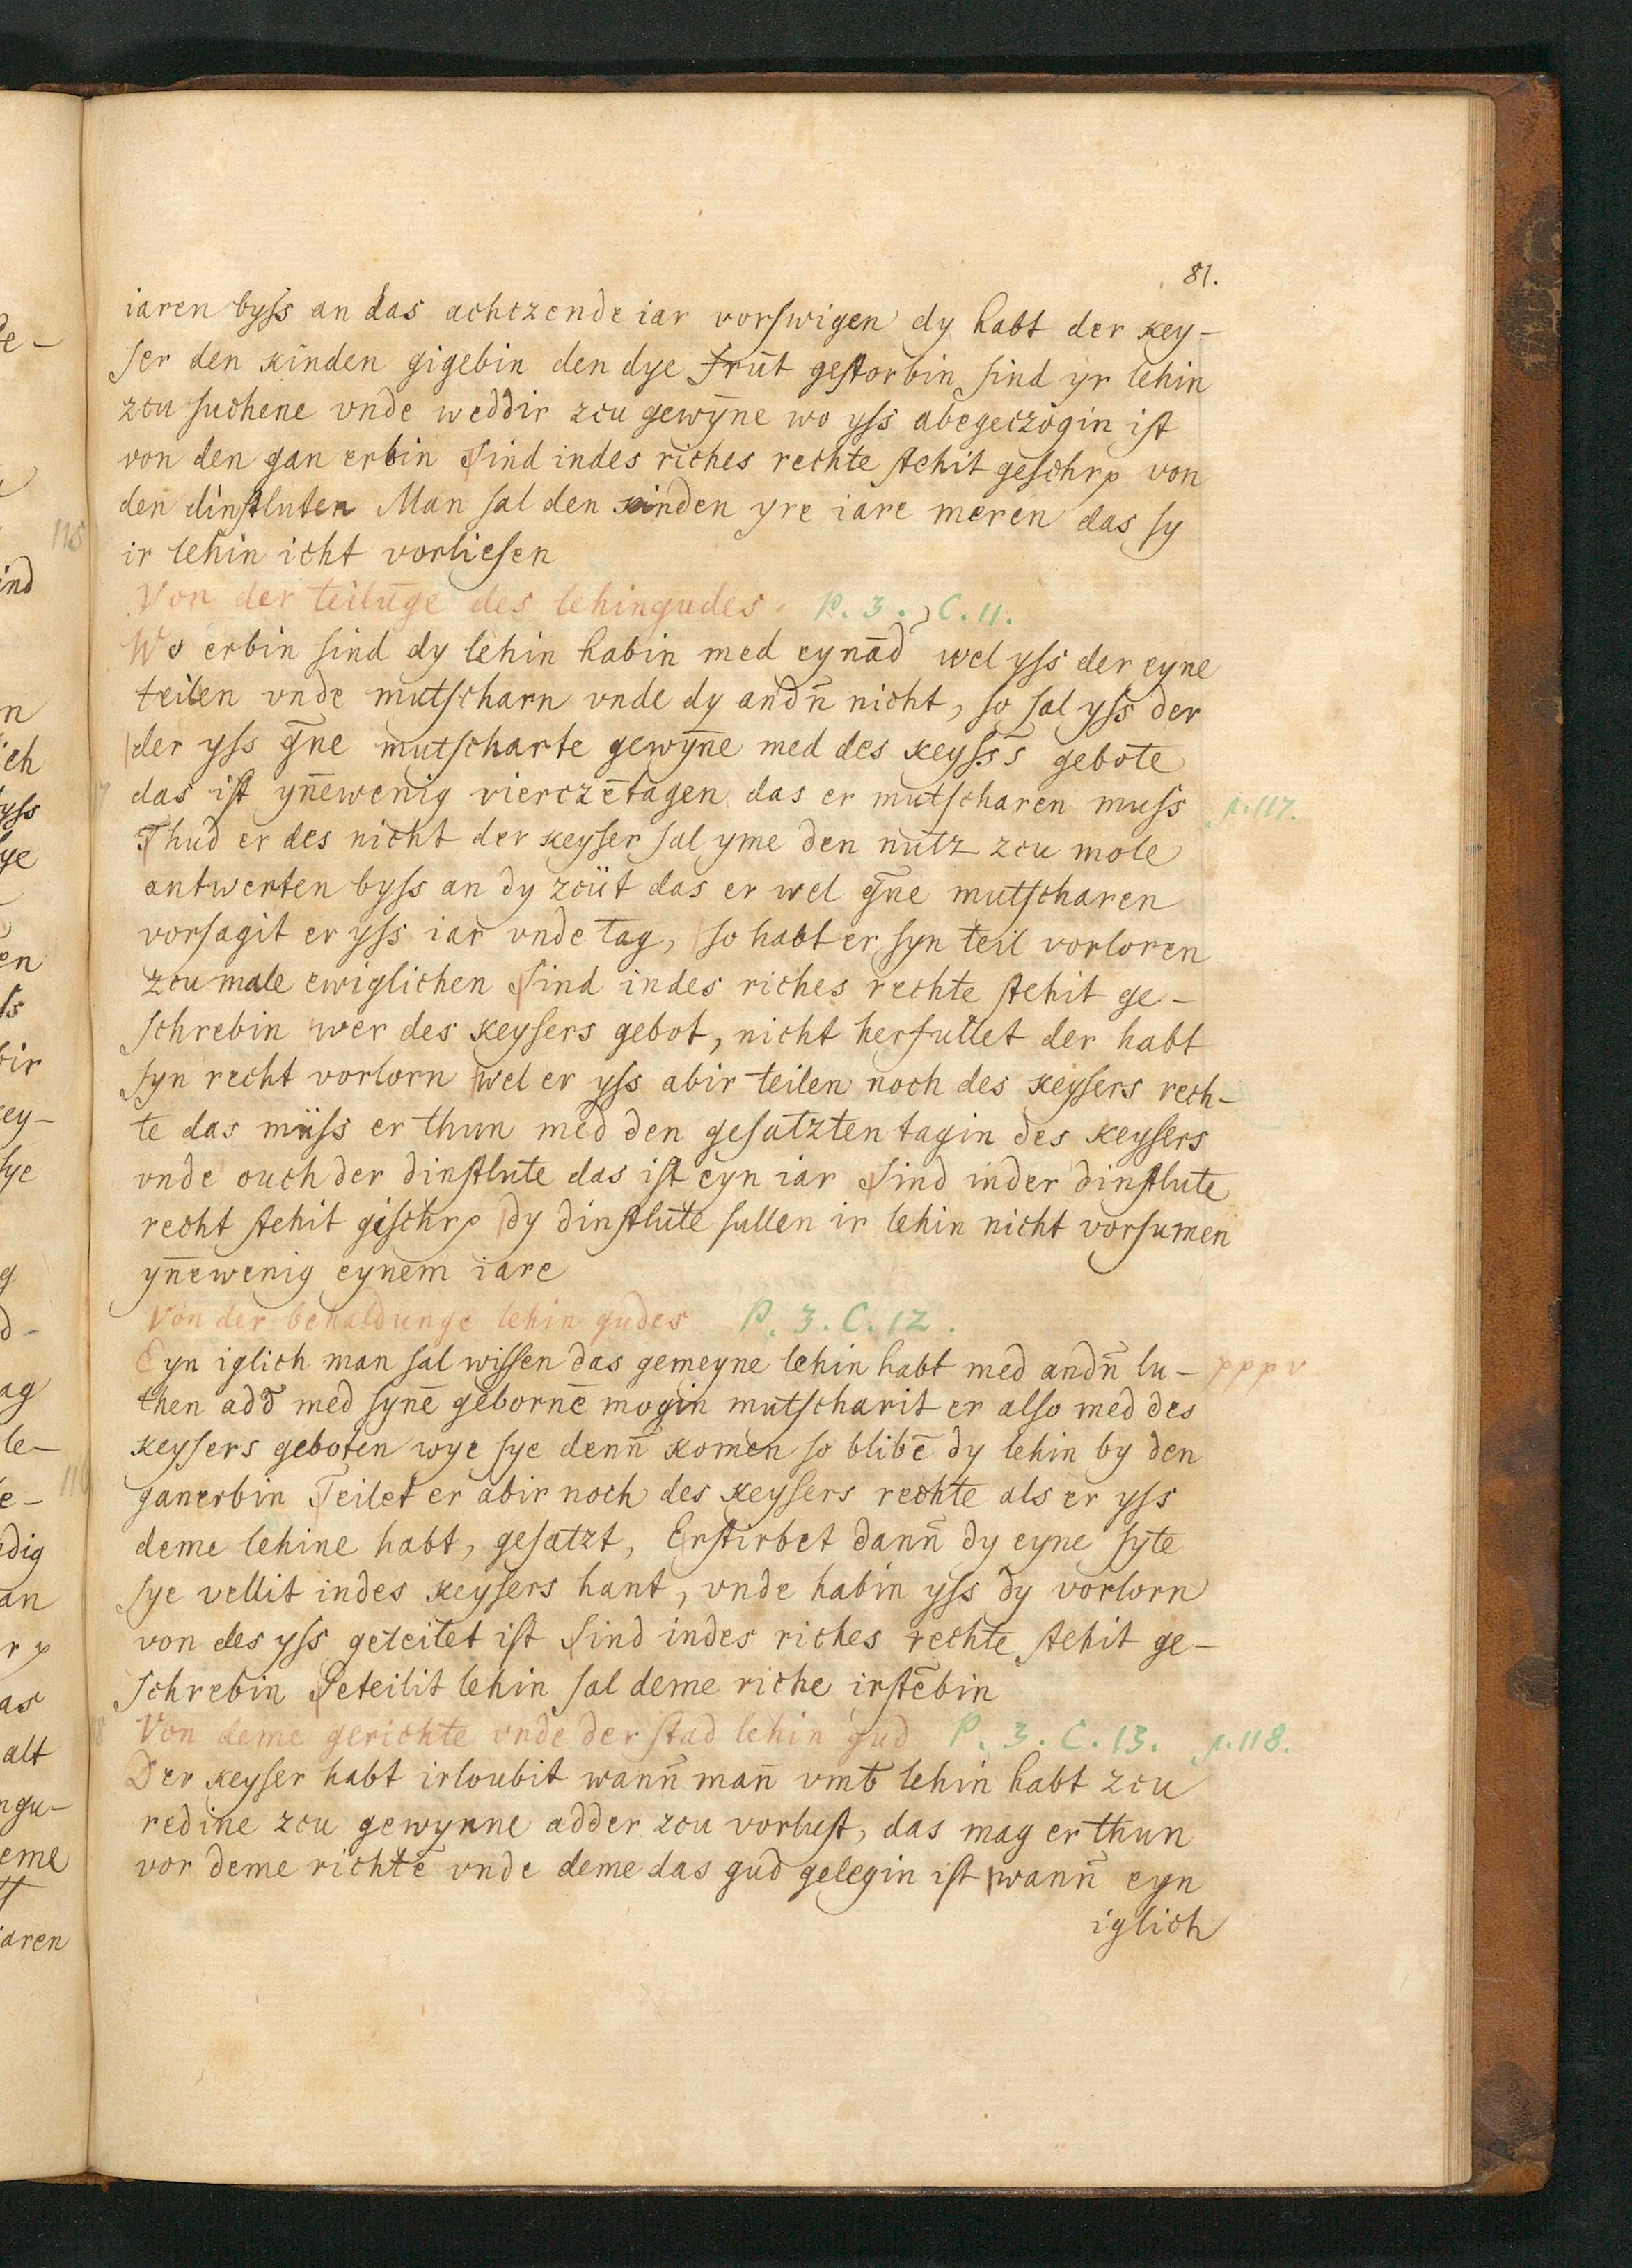 81.
iaren byss an das achtzende iar vorswigen dy habt der key-
ser den kinden gigebin den dye frūt gestorbin sind yr lehin
zcu suchene vnde weddir zcu gewȳne wo yss abegeczogin ist
von den gan erbin Sind indes riches rechte stehit geschrp von
den dinstluten Man sal den kinden yre iare meren das sy
ir lehin icht vorliesen
Von der teilūge des lehingudes. P. 3. C. 11.
Wo erbin sind dy lehin habin med eynād wel yss der eyne
teilen vnde mutscharn vnde dy andn̄ nicht, so sal yss der
der yss gn̄e mutscharte gewȳne med des keyss̄s gebote
das ist yn̄ewenig vierczētagen das er mutscharen muss p. 117.
Thud er des nicht der keyser sal yme den nutz zcu mole
antwerten byss an dy zcüt das er wel gn̄e mutscharen
vorsagit er yss iar vnde tag, so habt er syn teil vorloren
zcumale ewiglichen Sind indes riches rechte stehit ge-
schrebin wer des keysers gebot, nicht herfullet der habt
syn recht vorlorn wel er yss abir teilen noch des keysers rech-
te das müss er thun med den gesatzten tagin des keysers
vnde ouch der dinstlute das ist eyn iar Sind inder dinstlute
recht stehit gischrp dy dinstlute sullen ir lehin nicht vorsumen
yn̄ewenig eynem iare
Von der behaldunge lehin gudes P. 3. C. 12.
Eyn iglich man sal wissen das gemeyne lehin habt med andn̄ lu- pppv
then add̄ med synē gebornē mogin mutscharit er also med des
keysers geboten wye sye denn̄ komen so blibē dy lehin by den
ganerbin Teilet er abir noch des keysers rechte als er yss
deme lehine habt, gesatzt, Erstirbet dann̄ dy eyne syte
sye vellit indes keysers hant, vnde habin yss dy vorlorn
von des yss geteilet ist Sind indes riches rechte stehit ge-
schrebin Geteilit lehin sal deme riche irstēbin
Von deme gerichte vnde der stad lehin gud P. 3. C. 13. p. 118.
Der keyser habt irloubit wann̄ man̄ vmb̄ lehin habt zcu
redine zcu gewynne adder zcu vorlust, das mag er thun
vor deme richtē vnde deme das gud gelegin ist wann̄ eyn
iglich